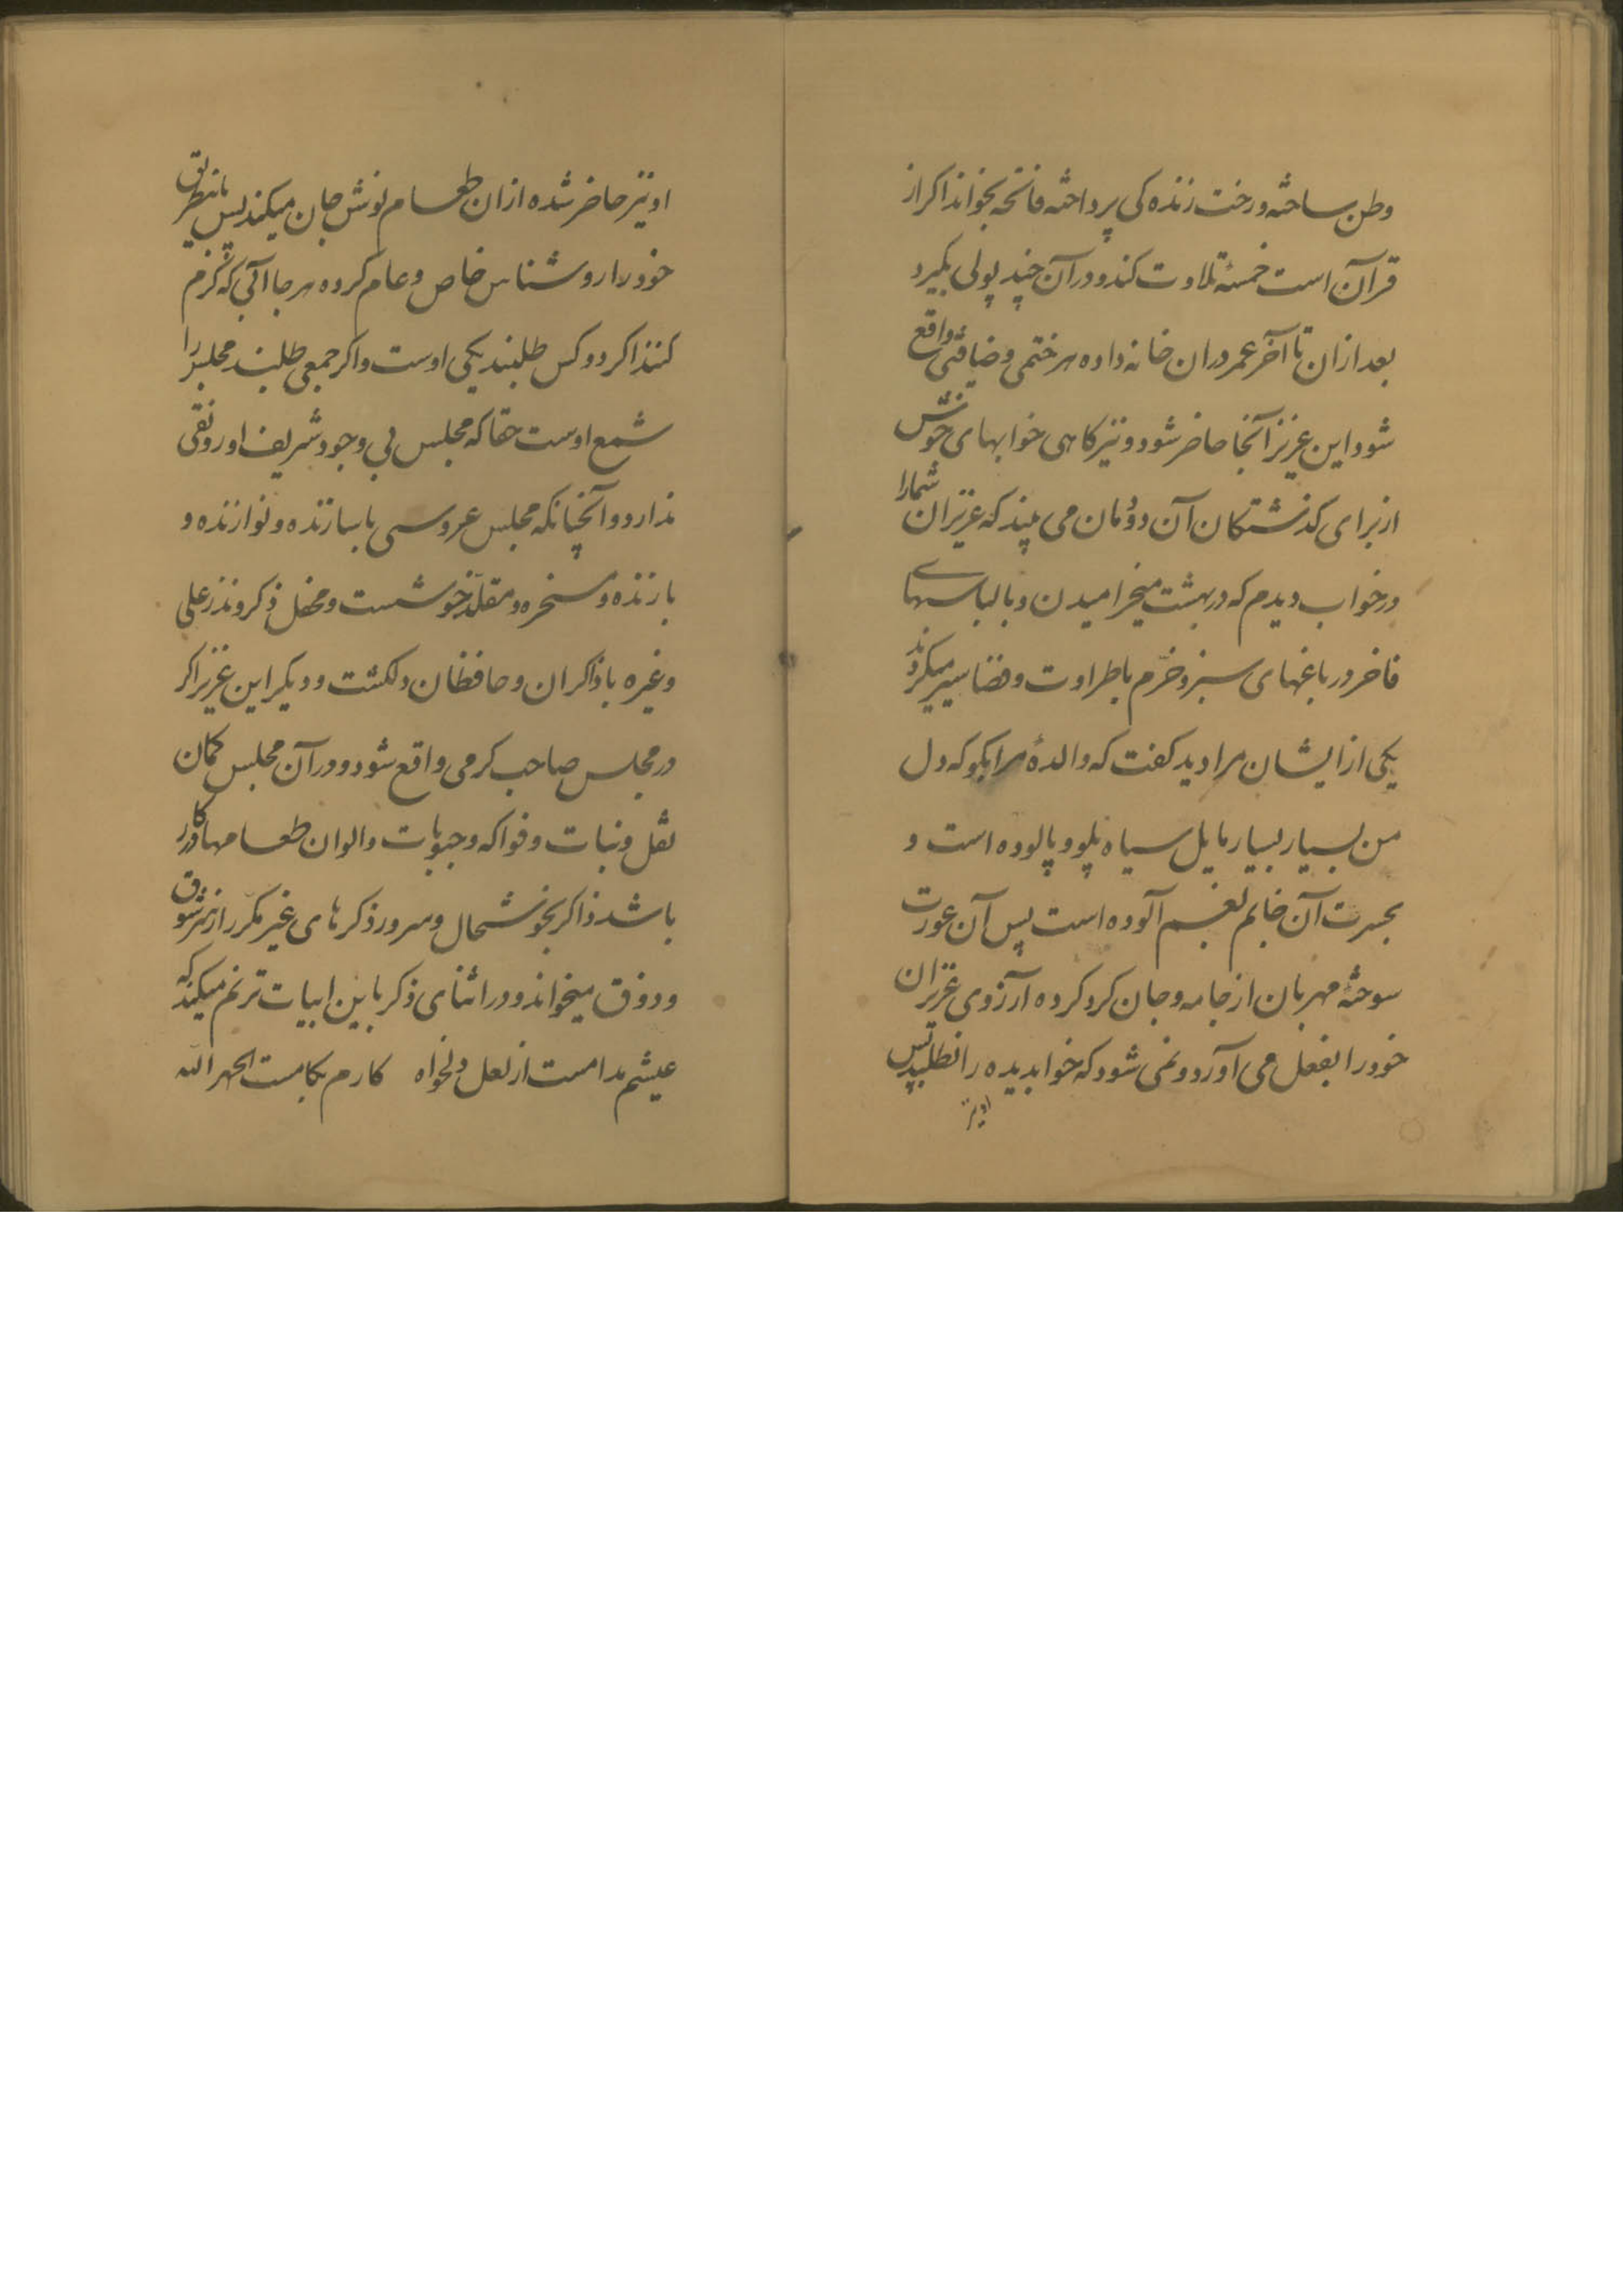 وطن ساخته و رخت زنده کی پرداخته فاتحه بخواند اکر از
قرآن است خمسهٔ تلاوت کند و در آن چند پولی بکیرد
بعد ازان تا آخر عمر دران خانه داده هر ختمی و ضیافتی واقع
شود این عزیز آنجا حاضر شود و نیز کاهی خوابهای خوش
از برای کذشتکان آن دودمان می بیند که عزیزان شمارا
در خواب دیدم که در بهشت میخرامیدن و با لباسهای
فاخر در باغهای سبز و خرّم با طراوت و فضا سیر میکردند
یکی از ایشان مرا دید کفت که والدهٔ مرا بکو که دل
من بسیار بسیار مایل سیاه پلو و پالوده است و
بحسرت آن جانم بغم آلوده است پس آن عورت
سوختهٔ مهربان از جامه و جان کرد کرده آرزوی عزیزان
خود را بفعل می آورد و نمی شود که خوابدیده را نطلبد پس
او نیز
او نیز حاضر شده ازان طعام نوش جان میکند پس باینطریق
خود را روشناس خاص و عام کرده هر جا آشی که کرم
کنند اکر دو کس طلبند یکی اوست و اکر جمعی طلبند مجلس را
شمع اوست حقا که مجلس بی وجود شریف او رونقی
ندارد و آنچنانکه مجلس عروسی با سازنده و نوازنده و
بازنده و مسخره و مقلّد خوشست و محفل ذکر و نذر علی
و غیره با ذاکران و حافظان دلکشت و دیکر این عزیز اکر
در مجلس صاحب کرمی واقع شود و در آن مجلس کمان
نقل و نبات و فواکه و حبوبات و الوان طعامها در کار
باشد ذاکر بخوشحال و سرور ذکرهای غیر مکرر از سر شوق
و ذوق میخواند و در اثنای ذکر باین ابیات ترنم میکند که
عیشم مدامست از لعل دلخواه کارم بکامست الحمد الله